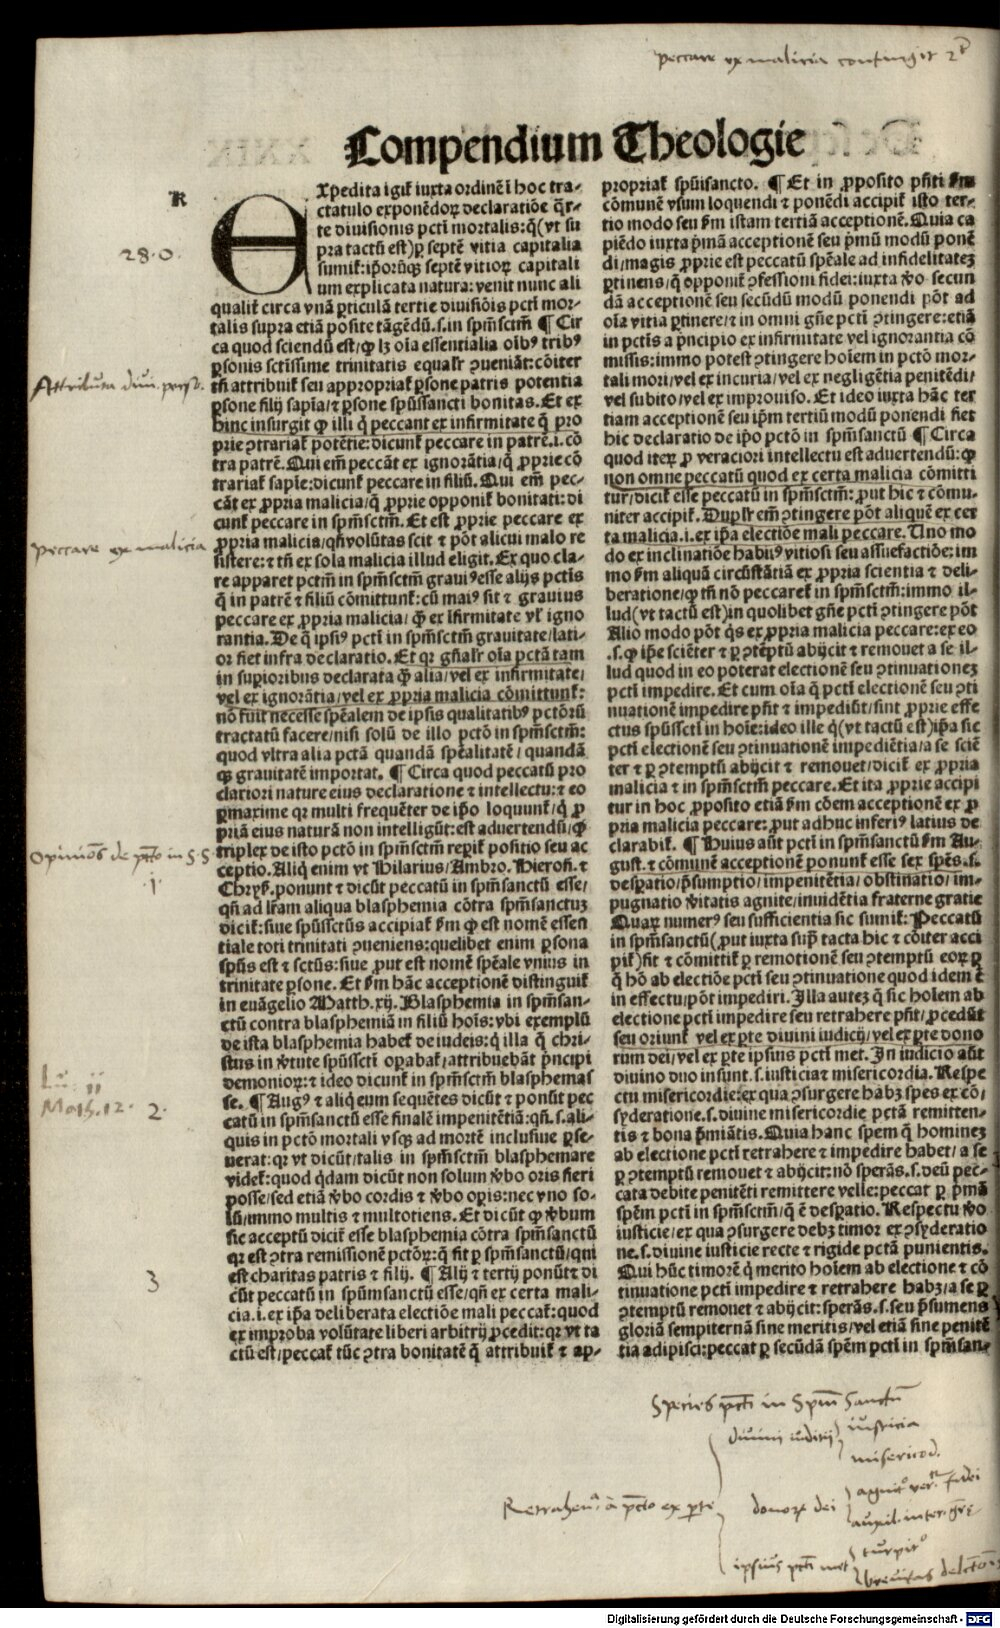 peccare ex malicia contingit 2r
Compendium Theologie
R
Expedita igit̃ iuxta ordinẽ ĩ hoc tra-
ctatulo exponẽdoꝝ declaratiõe q̃r-
te diuisionis pcti mortalis: q̃ (vt su
pra tactũ est) ꝑ septẽ vitia capitalia
sumit̃: ip̃orũqꝫ septẽ vitioꝝ capitali
um explicata natura: venit nunc ali
qualiť circa vnã ꝑticulã tertie diuisiõis pcti mor-
talis supra etiã posite tãgẽdũ .s. in spm̃ sctm̃ ¶ Cir
ca quod sciendũ est/ ꝙ lꝫ oĩa essentialia oĩbꝰ tribꝰ
ꝑsonis sctissime trinitatis equalr̃ ꝯueniãt: cõiter
tñ attribuit̃ seu appropriat̃ ꝑsone patris potentia
ꝑsone filij sapĩa/ ⁊ ꝑsone spũssancti bonitas. Et ex
hinc insurgit ꝙ illi q̃ peccant ex infirmitate q̃ pro
prie ꝯtrariat̃ potẽtie: dicunt̃ peccare in patrẽ .i. cõ
tra patrẽ. Qui em̃ peccãt ex ignorãtia/ q̃ ꝓprie cõ
trariat̃ sapĩe: dicunt̃ peccare in filiũ. Qui em̃ pec-
cãt ex ꝓpria malicia/ q̃ ꝓprie opponit̃ bonitati: di
cunt̃ peccare in spm̃sctm̃. Et est ꝓprie peccare ex
ꝓpria malicia/ qñ volũtas scit ⁊ põt alicui malo re
sistere: ⁊ tñ ex sola malicia illud eligit. Ex quo cla-
re apparet pctm̃ in spm̃sctm̃ grauiꝰ esse alijs pctĩs
q̃ in patrẽ ⁊ filiũ cõmittunt̃: cũ maiꝰ sit ⁊ grauius
peccare ex ꝓpria malicia/ ꝙ̃ ex ĩfirmitate vl̃ igno
rantia. De q̃ ipsiꝰ pcti in spm̃sctm̃ grauitate/ lati-
or fiet infra declaratio. Et qr gñalr̃ oĩa pctã tam
in suꝑioribus declarata ꝙ̃ alia/ vel ex infirmitate/
vel ex ignorãtia/ vel ex ꝓpria malicia cõmittunt̃:
nõ fuit necesse spẽalem de ipsis qualitatibꝰ pctõrũ
tractatũ facere/ nisi solũ de illo pctõ in spm̃sctm̃:
quod vltra alia pctã quandã spẽalitatẽ/ quandã
qꝫ grauitatẽ importat. ¶ Circa quod peccatũ pro
clariori nature eius declaratione ⁊ intellectu: ⁊ eo
ꝑmaxime qr multi frequẽter de ip̃o loquunt̃/ q̃ ꝓ
priã eius naturã non intelligũt: est aduertendũ/ ꝙ
triplex de isto pctõ in spm̃sctm̃ reꝑit̃ positio seu ac
ceptio. Aliq̃ enim vt Hilarius/ Ambro. Hieroñ. ⁊
Chryß. ponunt ⁊ dicũt peccatũ in spm̃sanctũ esse/
qñ ad lr̃am aliqua blasphemia cõtra spm̃sanctuꝫ
dicit̃: siue spũssctũs accipiat̃ ẜm ꝙ est nomẽ essen
tiale toti trinitati ꝯueniens: quelibet enim ꝑsona
spũs est ⁊ sctũs: siue ꝓut est nomẽ spẽale vnius in
trinitate ꝑsone. Et ẜm hãc acceptionẽ distinguit̃
in euãgelio Matth. xij. Blasphemia in spm̃san-
ctũ contra blasphemiã in filiũ hoĩs: vbi exemplũ
de ista blasphemia habet̃ de iudeis: q̃ illa q̃ chri-
stus in ṽtute spũsscti oꝑabat̃/ attribuebãt p̃ncipi
demonioꝝ: ⁊ ideo dicunt̃ in spm̃sctm̃ blasphemas
se. ¶ Augꝰ ⁊ aliq̃ eum sequẽtes dicũt ⁊ ponũt pec
catũ in spm̃sanctũ esse finalẽ impenitẽtiã: qñ .s. ali-
quis in pctõ mortali vsqꝫ ad mortẽ inclusiue ꝑse-
uerat: qr vt dicũt/ talis in spm̃sctm̃ blasphemare
videt̃: quod q̃dam dicũt non solum ṽbo oris fieri
posse/ sed etiã ṽbo cordis ⁊ ṽbo oꝑis: nec vno so-
lũ/ immo multis ⁊ multotiens. Et dicũt ꝙ ṽbum
sic acceptũ dicit̃ esse blasphemia cõtra spm̃sanctũ
qr est ꝯtra remissionẽ pctõꝝ: q̃ fit ꝑ spm̃sanctũ/ qui
est charitas patris ⁊ filij. ¶ Alij ⁊ tertij ponũt ⁊ di
cũt peccatũ in spũmsanctũ esse/ qñ ex certa mali-
cia .i. ex ip̃a deliberata electiõe mali peccat̃: quod
ex improba volũtate liberi arbitrij ꝓcedit: qr vt ta
ctũ est/ peccat̃ tũc ꝯtra bonitatẽ q̃ attribuit̃ ⁊ ap-
propriat̃ spũisancto. ¶ Et in ꝓposito pñti ẜm
cõmunẽ vsum loquendi ⁊ ponẽdi accipit̃ isto ter-
tio modo seu ẜm istam tertiã acceptionẽ. Quia ca
piẽdo iuxta p̃mã acceptionẽ seu p̃mũ modũ ponẽ
di/ magis ꝓprie est peccatũ spẽale ad infidelitateꝫ
ꝑtinens/ q̃ opponit̃ ꝯfessioni fidei: iuxta ṽo secun
dã acceptionẽ seu secũdũ modũ ponendi põt ad
oĩa vitia ꝑtinere/ ⁊ in omni gñe pcti ꝯtingere: etiã
in pctĩs a p̃ncipio ex infirmitate vel ignorantia cõ
missis: immo potest ꝯtingere hoĩem in pctõ mor-
tali mori/ vel ex incuria/ vel ex negligẽtia penitẽdi/
vel subito/ vel ex improuiso. Et ideo iuxta hãc ter
tiam acceptionẽ seu ip̃m tertiũ modũ ponendi fiet
hic declaratio de ip̃o pctõ in spm̃sanctũ ¶ Circa
quod iteꝝ ꝓ veraciori intellectu est aduertendũ: ꝙ
non omne peccatũ quod ex certa malicia cõmitti
tur/ dicit̃ esse peccatũ in spm̃sctm̃: ꝓut hic ⁊ cõmu-
niter accipit̃. Duplr̃ em̃ ꝯtingere põt aliquẽ ex cer
ta malicia .i. ex ip̃a electiõe mali peccare. Uno mo
do ex inclinatiõe habitꝰ vitiosi seu assuefactiõe: im
mo ẜm aliquã circũstãtiã ex ꝓpria scientia ⁊ deli-
beratione/ ꝙ tñ nõ peccaret̃ in spm̃sctm̃: immo il-
lud (vt tactũ est) in quolibet gñe pcti ꝯtingere põt
Alio modo põt q̃s ex ꝓpria malicia peccare: ex eo
.s. ꝙ ip̃e sciẽter ⁊ ꝑ ꝯtẽptũ abijcit ⁊ remouet a se il-
lud quod in eo poterat electionẽ seu ꝯtinuationeꝫ
pcti impedire. Et cum oĩa q̃ pcti electionẽ seu ꝯti
nuationẽ impedire pñt ⁊ impediũt/ sint ꝓprie effe
ctus spũsscti in hoĩe: ideo ille q̃ (vt tactũ est) ip̃a sic
pcti electionẽ seu ꝯtinuationẽ impediẽtia/ a se sciẽ
ter ⁊ ꝑ ꝯtemptũ abijcit ⁊ remouet/ dicit̃ ex ꝓpria
malicia ⁊ in spm̃sctm̃ peccare. Et ita ꝓprie accipi
tur in hoc ꝓposito etiã ẜm cõem acceptionẽ ex ꝓ
pria malicia peccare: ꝓut adhuc inferiꝰ latius de
clarabit̃. ¶ Huius aũt pcti in spm̃sanctũ ẜm Au-
gust. ⁊ cõmunẽ acceptionẽ ponunt̃ esse sex spẽs .s.
desꝑatio/ p̃sumptio/ impenitẽtia/ obstinatio/ im-
pugnatio ṽitatis agnite/ inuidẽtia fraterne gratie
Quaꝝ numerꝰ seu sufficientia sic sumit̃: Peccatũ
in spm̃sanctũ (ꝓut iuxta sup̃ tacta hic ⁊ cõiter acci
pit̃) fit ⁊ cõmittit̃ ꝑ remotionẽ seu ꝯtemptũ eoꝝ ꝑ
q̃ hõ ab electiõe pcti seu ꝯtinuatione quod idem ẽ
in effectu/ põt impediri. Illa auteꝫ q̃ sic hoĩem ab
electione pcti impedire seu retrahere pñt/ ꝓcedũt
seu oriunt̃ vel ex ꝑte diuini iudicij/ vel ex ꝑte dono
rum dei/ vel ex ꝑte ipsius pcti met. In iudicio aũt
diuino duo insunt .s. iusticia ⁊ misericordia. Respe
ctu misericordie: ex qua ꝯsurgere habꝫ spes ex cõ-
syderatione .s. diuine misericordie pctã remitten-
tis ⁊ bona p̃miãtis. Quia hanc spem q̃ homineꝫ
ab electione pcti retrahere ⁊ impedire habet/ a se
ꝑ ꝯtemptũ remouet ⁊ abijcit: nõ sperãs .s. deũ pec-
cata debite penitẽti remittere velle: peccat ꝑ p̃mã
spẽm pcti in spm̃sctm̃/ q̃ ẽ desꝑatio. Respectu ṽo
iusticie/ ex qua ꝯsurgere debꝫ timor ex ꝯsyderatio
ne .s. diuine iusticie recte ⁊ rigide pctã punientis.
Qui hũc timorẽ q̃ merito hoĩem ab electione ⁊ cõ
tinuatione pcti impedire ⁊ retrahere habꝫ/ a se ꝑ
ꝯtemptũ remouet ⁊ abijcit: sperãs .s. seu p̃sumens
gloriã sempiternã sine meritis/ vel etiã sine penitẽ
tia adipisci: peccat ꝑ secũdã spẽm pcti in spm̃san-
28.0.
Attributa diuin. pers.
peccare ex malicia
Opinio͂s de pcto in S. S
.1.
Lu. ii
Math. 12.
2.
3
Species pcti in Spm Sanctũ
diuini iuditij
iusticia
misericod.
Retrahenª à pcto ex ꝑte
donoꝝ dei
agnitº verᵗ fidei
auxil. inter. grẽ
ipsius pcti met
turpitº
breuitas delctõis
Digitalisierung gefördert durch die Deutsche Forschungsgemeinschaft - DFG